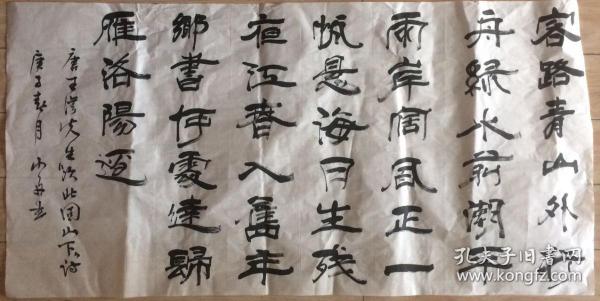 客路青山外行
舟緑水前潮平
兩岸阔風正一
帆悬海日生残
夜江春入舊年
鄉書何處達歸
雁洛陽邊
唐王湾先生次北固山下诗
庚子春月
孔夫子旧書网
www.kongfz.com